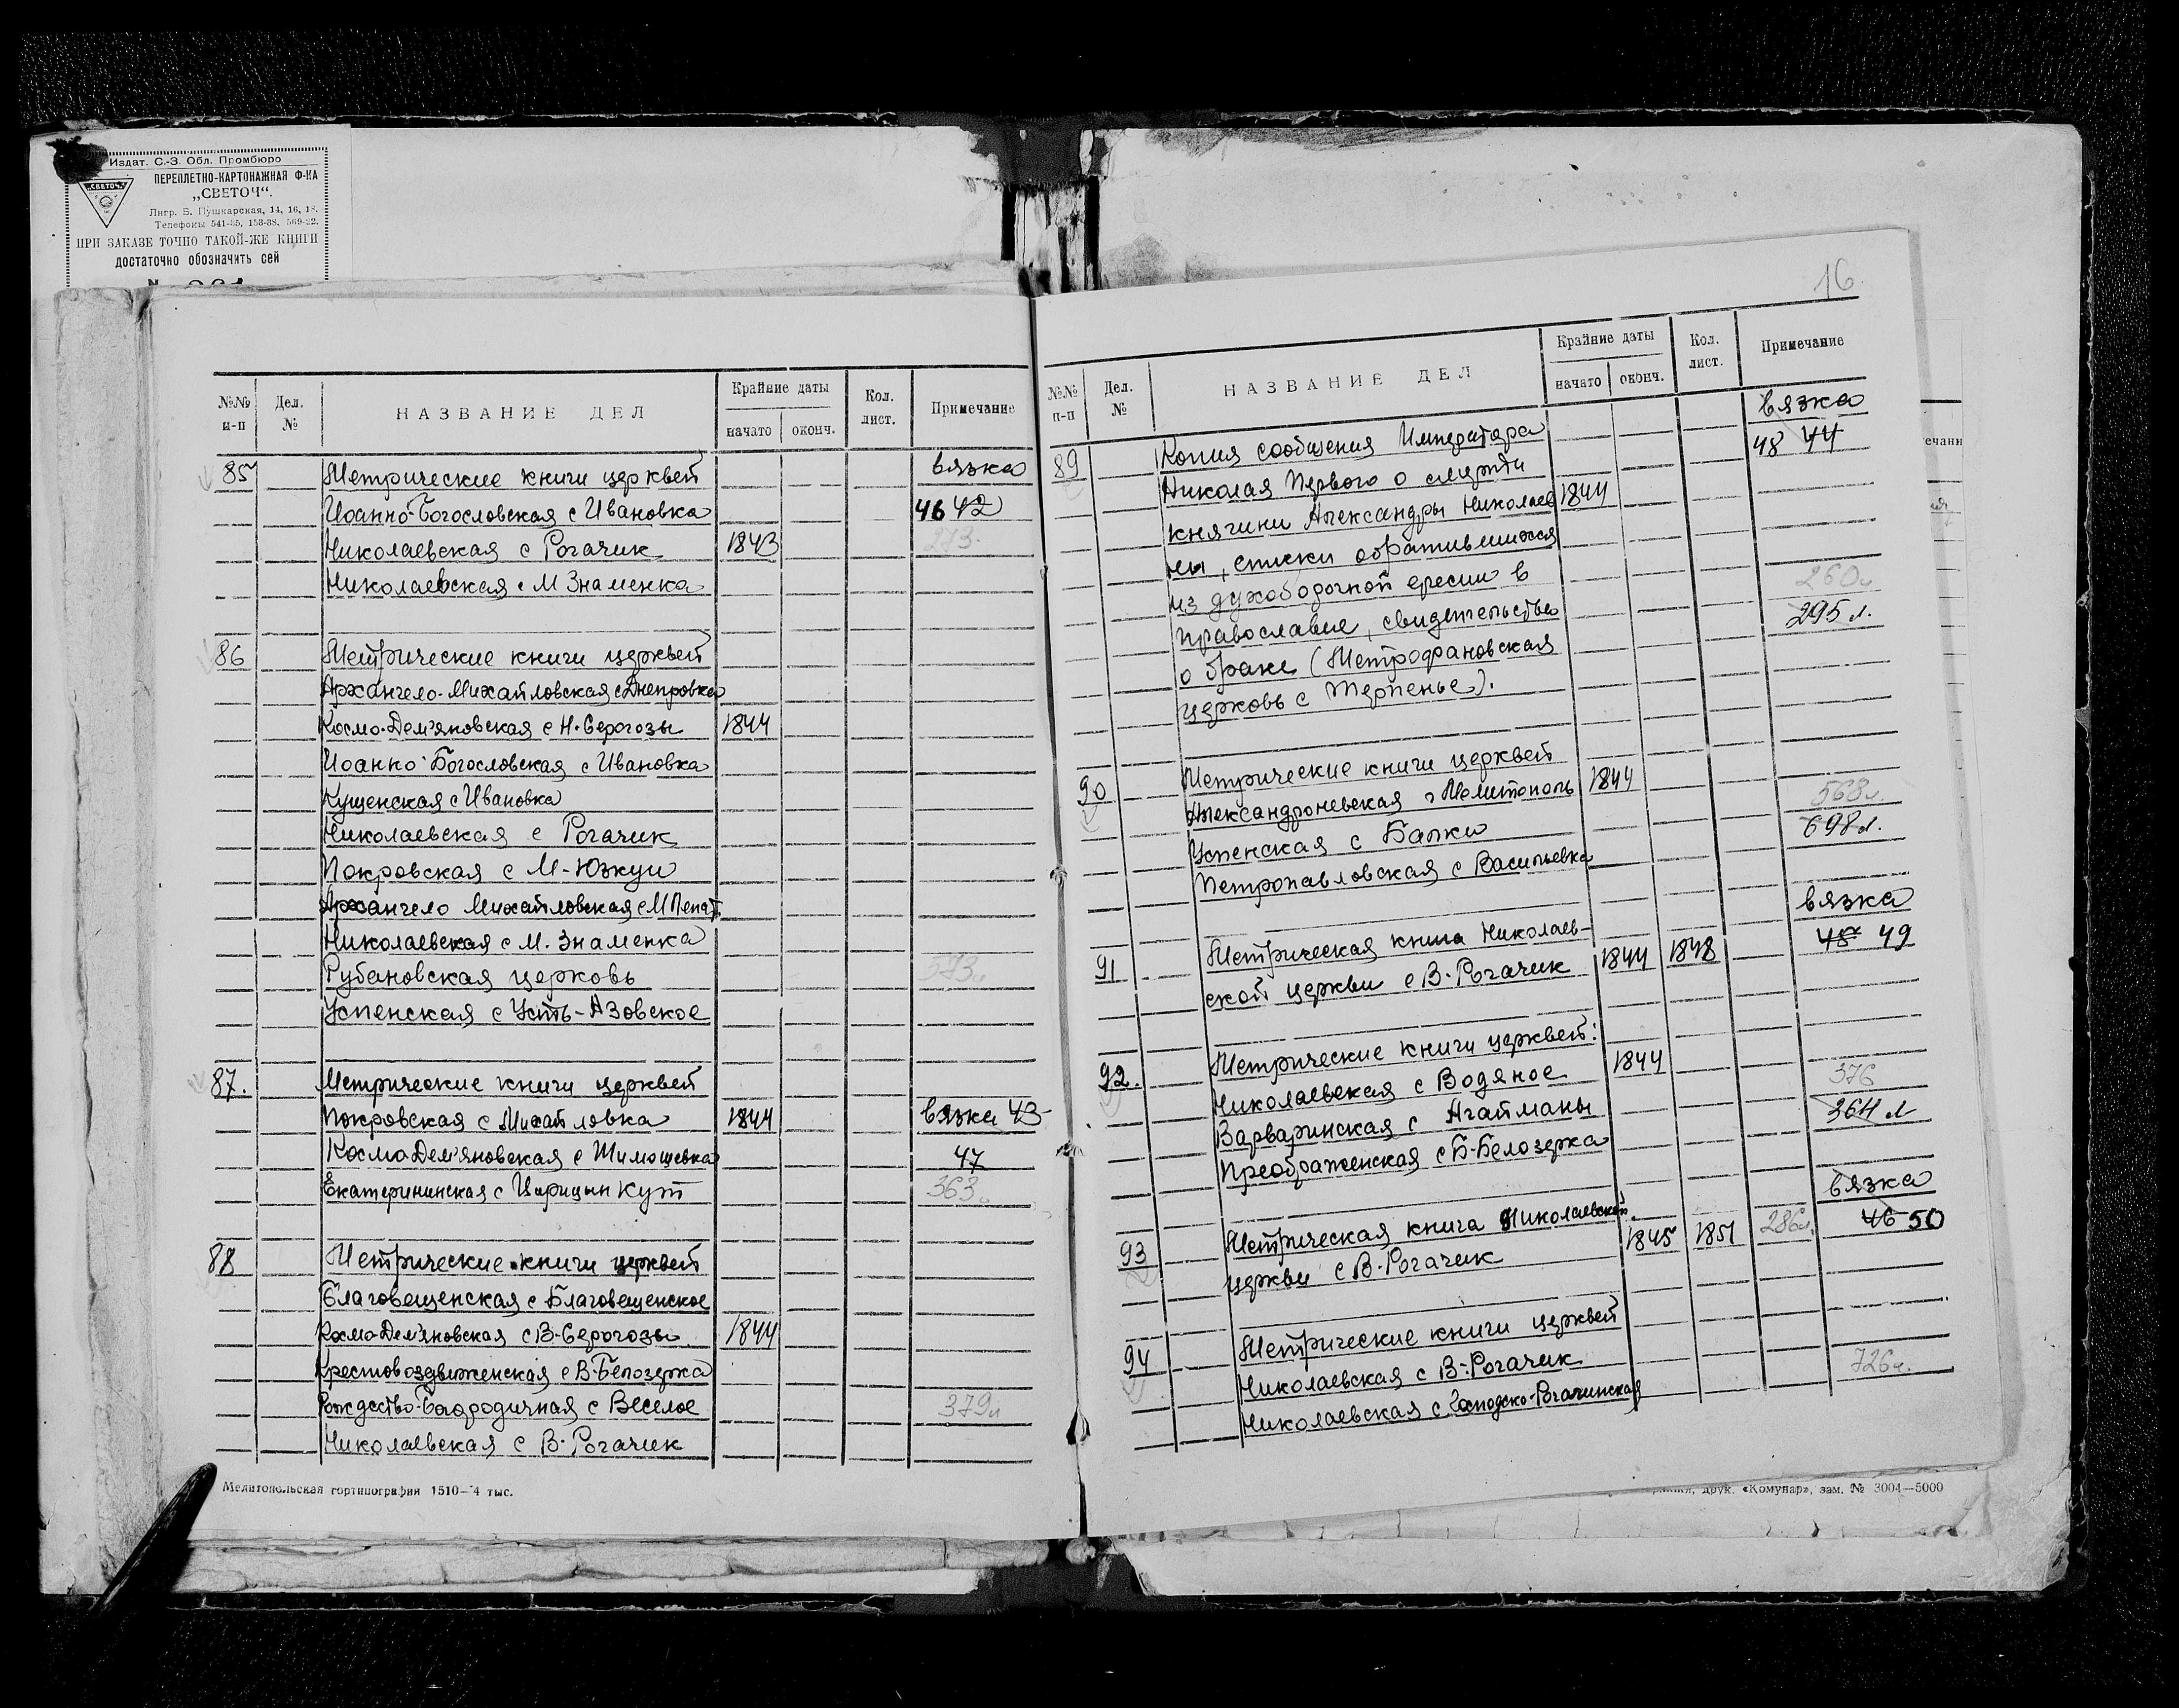 Издат. С.-З. Обл. Промбюро
ПЕРЕПЛЕТНО-КАРТОНАЖНАЯ Ф-КА
„СВЕТОЧ“.
„СВЕТОЧ“
Лнгр. Б. Пушкарская, 14, 16, 18.
Телефоны 541-35, 158-38, 569-22.
ПРИ ЗАКАЗЕ ТОЧНО ТАКОЙ-ЖЕ КНИГИ
достаточно обозначить сей
№№ п-п Дел. № НАЗВАНИЕ ДЕЛ Крайние даты начато оконч. Кол. лист. Примечание
85 Метрические книги церквей вязка
Иоанно-Богословская с Ивановка 46 42
Николаевская с Рогачик 1843 273
Николаевская с М Знаменка
86 Метрические книги церквей
Архангело-Михайловская с Днепровка
Космо-Дем'яновская с Н. Серогозы 1844
Иоанно-Богословская с Ивановка
Кущенская с Ивановка
Николаевская с Рогачик
Покровская с М-Юзкуи
Архангело Михайловская с М Лепат.
Николаевская с М. Знаменка
Рубановская церковь 573л
Успенская с Усть-Азовское
87. Метрические книги церквей
Покровская с Михайловка 1844 вязка 43
Космо Дем'яновская с Тимошевка 47
Екатерининская с Царицын Кут 363л
88 Метрические книги церквей
Благовещенская с Благовещенское
Космо-Дем'яновская с В-Серогозы 1844
Крестовоздвиженская с В-Белозерка
Рождество-Богородичная с Веселое 379л
Николаевская с В-Рогачик
Мелитопольская гортипография 1510—4 тыс.
16
№№ п-п Дел. № НАЗВАНИЕ ДЕЛ Крайние даты начато оконч. Кол. лист. Примечание
вязка
89 Копия сообшения Императора 48 44
Николая Первого о смерти
княгини Александры Николаев 1844
ны, списки обратившихся
из духоборочной ереси в 260л
православие, свидетельство 295 л.
о браке (Метрофановская
церковь с Терпенье).
90 Метрические книги церквей
Александроневская г Мелитополь 1844 568л.
Успенская с Балки 698л.
Петропавловская с Васильевка
вязка
91 Метрическая книга Николаев- 1844 1848 48 49
ской церкви с В-Рогачик
92. Метрические книги церквей: 1844
Николаевская с Водяное 376
Варваринская с Агайманы 364 л
Преображенская с Б-Белозерка
вязка
93 Метрическая книга Николаевской 1845 1851 286л. 46 50
церкви с В-Рогачик
94 Метрические книги церквей
Николаевская с В-Рогачик 726л.
Николаевская с Господско-Рогачинская
друк. «Комунар», зам. № 3004—5000